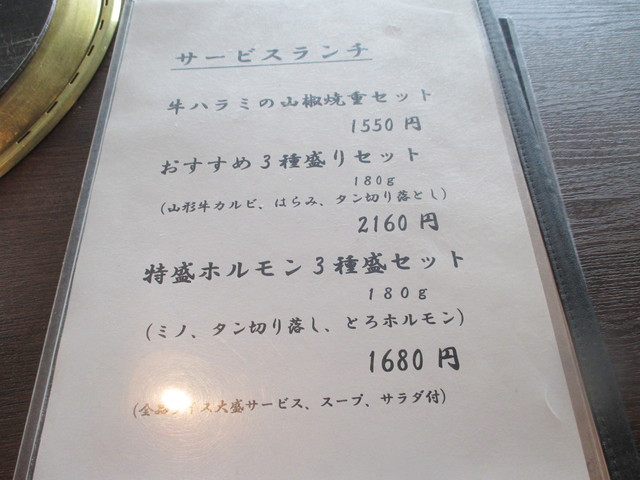 サービスランチ
牛ハラミの山椒焼重セット
1550 円
おすすめ3種盛りセット
180g
(山形牛カルビ、はらみ、タン切り落とし)
2160 円
特盛ホルモン3種盛セット
180g
(ミノ、タン切り落し、とろホルモン)
1680 円
(全品ライス大盛サービス、スープ、サラダ付)